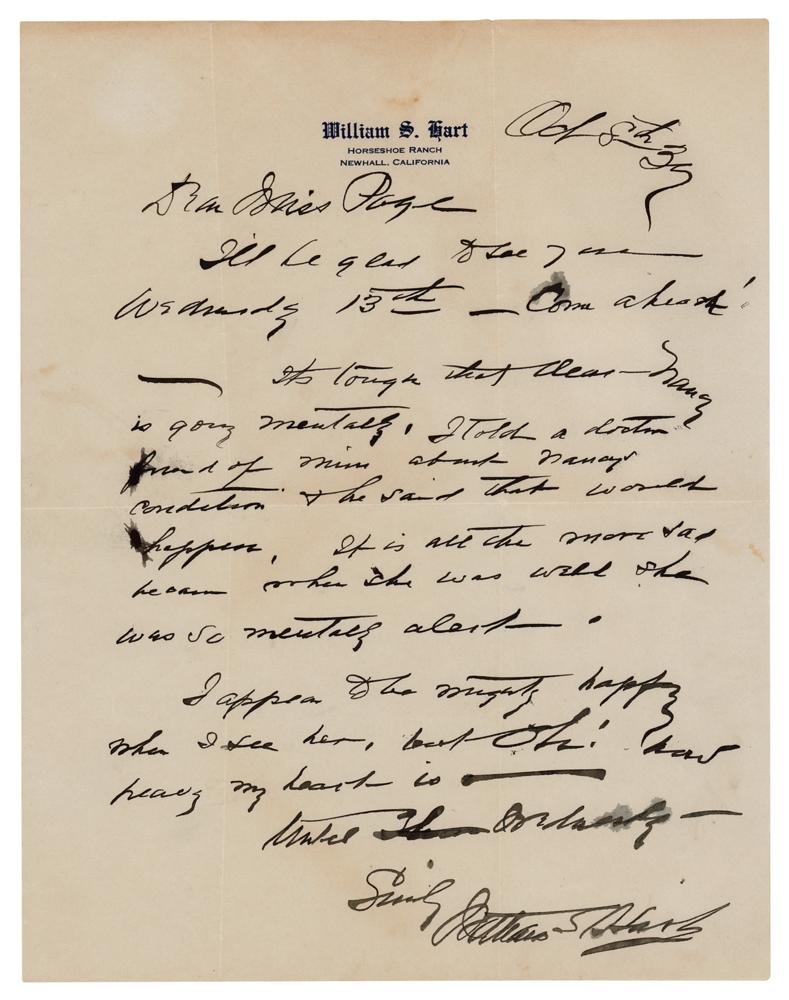 William S. Hart
HORSESHOE RANCH
NEWHALL, CALIFORNIA
Oct 8th
37
Dear Miss Page
I'll be glad to see you —
Wednesday 13th — Come ahead!
— Its tough that dear — Nancy
is going mentally. I told a doctor
friend of mine about Nancy's
condition & he said that would
happen. It is all the more sad
because when she was well she
was so mentally alert — .
I appear to be mighty happy
when I see her, but Oh! how
heavy my heart is —
Until Wednesday —
Sincerely
William S Hart